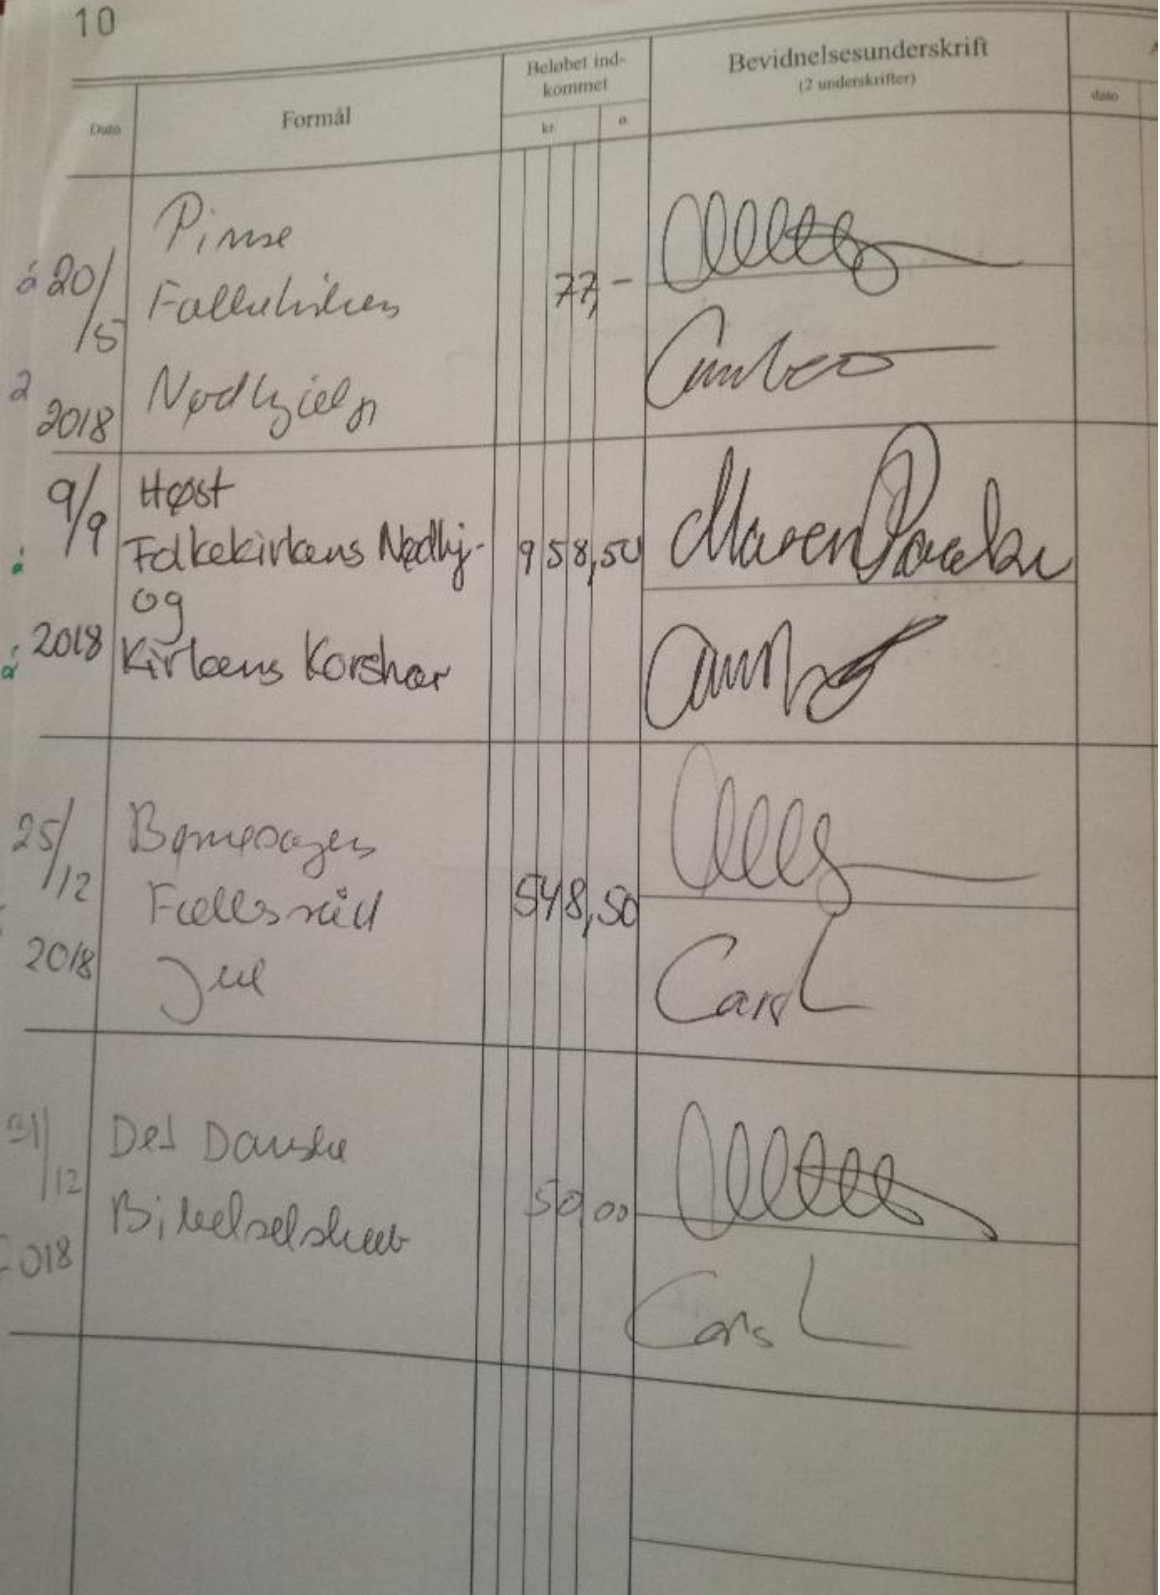 10
Dato
Formål
Beløbet ind-
kommet
kr.
ø.
Bevidnelsesunderskrift
(2 underskrifter)
dato
20/5
2018
Pinse
Folkekirkens
Nødhjælp
77,-
9/9
2018
Høst
Folkekirkens Nødhj-
og
Kirkens Korshær
958,50
Maren
25/12
2018
Børnesagens
Fællesråd
Jul
548,50
31/12
2018
Det Danske
Bibelselskab
50,00